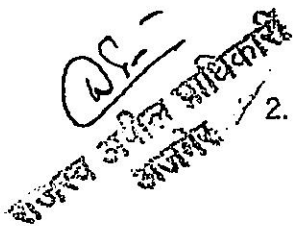 राजस्व अपील प्राधिकारी
अजमेर
2.